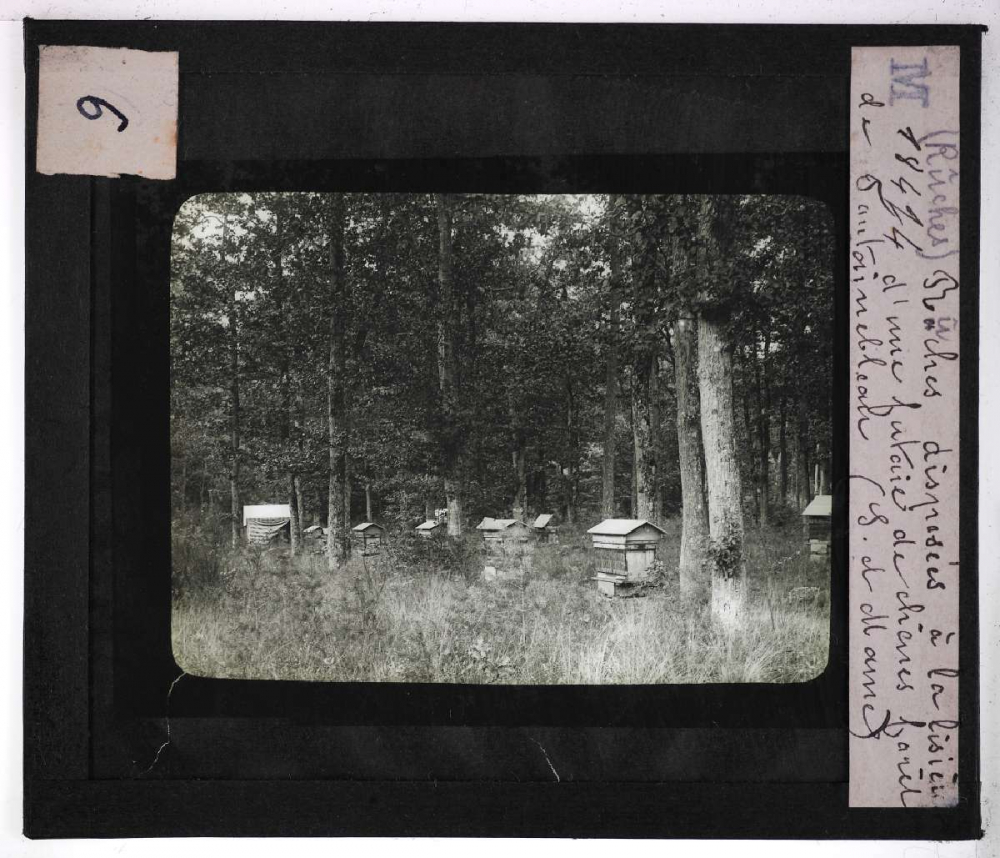 9
M (Rûches) Rûches disposées à la lisière
d'une futaie de chênes forêt
de Fontainebleau (S. et Marne)